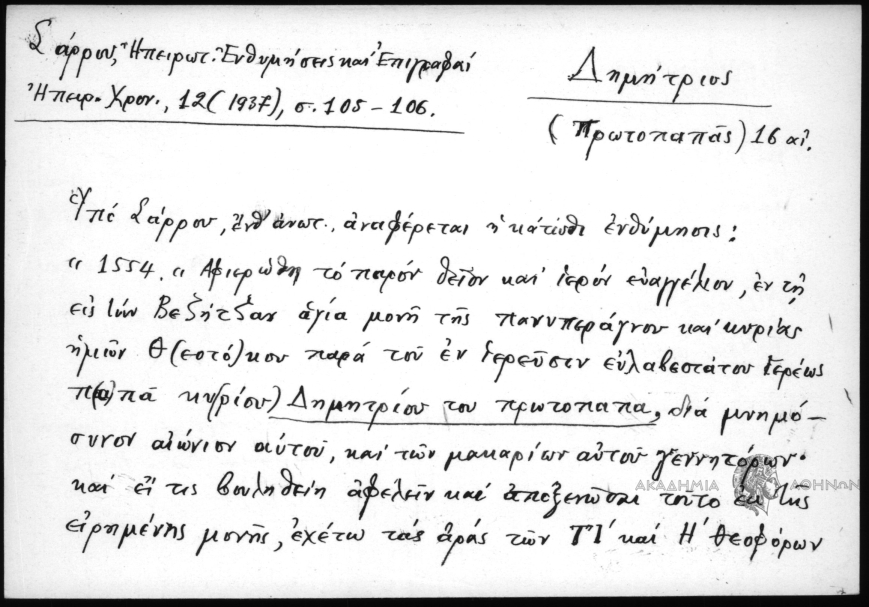 Σάρρου, Ἠπειρωτ. Ἐνθυμήσεις καί Ἐπιγραφαί
Ἠπειρ. Χρον., 12 (1937), σ. 105-106.
Δημήτριος
(Πρωτοπαπᾶς) 16 αἰ.
Ὑπό Σάρρου, ἔνθ' ἀνωτ., ἀναφέρεται ἡ κάτωθι ἐνθύμησις:
"1554. " Αφιερώθη τό παρόν θεῖον καί ἱερόν εὐαγγέλιον, ἐν τῇ
εἰς τήν Βεζήτζαν ἁγία μονῆ τῆς πανυπεράγνου καί κυρίας
ἡμῶν Θ(εοτό)κου παρά τοῦ ἐν ἱερεῦσιν εὐλαβεστάτου ἱερέως
π(α)πᾶ κυ(ρίου) Δημητρίου του πρωτοπαπα, διά μνημό-
συνον αἰώνιον αὐτοῦ, καί τῶν μακαρίων αὐτοῦ γεννητόρων·
καί εἴ τις βουληθείη ἀφελεῖν καί ἀποξενῶσαι τοῦτο ἐκ τῆς
εἰρημένης μονῆς, ἐχέτω τάς ἀράς τῶν ΤΙ΄ καί Η΄ θεοφόρων
ΑΚΑΔΗΜΙΑ ΑΘΗΝΩΝ